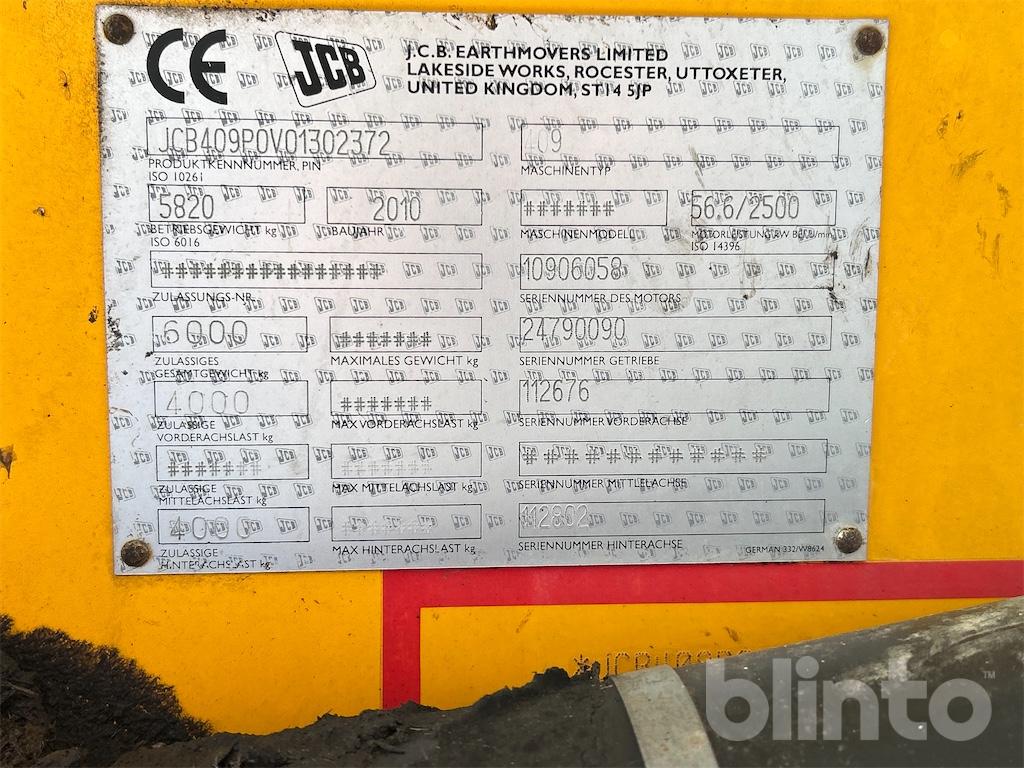 CE JCB J.C.B. EARTHMOVERS LIMITED
LAKESIDE WORKS, ROCESTER, UTTOXETER,
UNITED KINGDOM, ST14 5JP
JCB409P0V01302372 409
PRODUKTKENNNUMMER, PIN MASCHINENTYP
ISO 10261
5820 2010 ####### 56.6/2500
BETRIEBSGEWICHT kg BAUJAHR MASCHINENMODELL MOTORLEISTUNG kW BEI U/min
ISO 6016 ISO 14396
################# 10906058
ZULASSUNGS-NR. SERIENNUMMER DES MOTORS
6000 ####### 24790090
ZULASSIGES MAXIMALES GEWICHT kg SERIENNUMMER GETRIEBE
GESAMTGEWICHT kg
4000 ####### 112676
ZULASSIGE MAX VORDERACHSLAST kg SERIENNUMMER VORDERACHSE
VORDERACHSLAST kg
####### ####### ############
ZULASSIGE MAX MITTELACHSLAST kg SERIENNUMMER MITTLELACHSE
MITTELACHSLAST kg
4000 ####### 112802
ZULASSIGE MAX HINTERACHSLAST kg SERIENNUMMER HINTERACHSE GERMAN 332/W8624
HINTERACHSLAST kg
blinto™